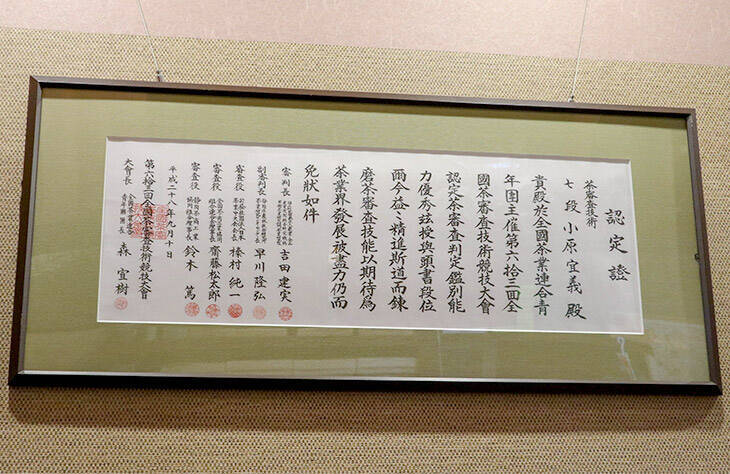 認定證
茶審査技術
七段 小原宜義殿
貴殿於全國茶業連合青
年團主催第六拾三回全
國茶審査技術競技大會
認定茶審査判定鑑別能
力優秀玆授與頭書段位
爾今益〻精進斯道而錬
磨茶審査技能以期待為
茶業界發展被盡力仍而
免狀如件
審判長
吉田建実
副審判長
早川隆弘
審査役
榛村純一
審査役
齋藤松太郎
審査役
鈴木 篤
平成二十八年九月十日
第六拾三回全國茶審査技術競技大會
大會長
森 宣樹